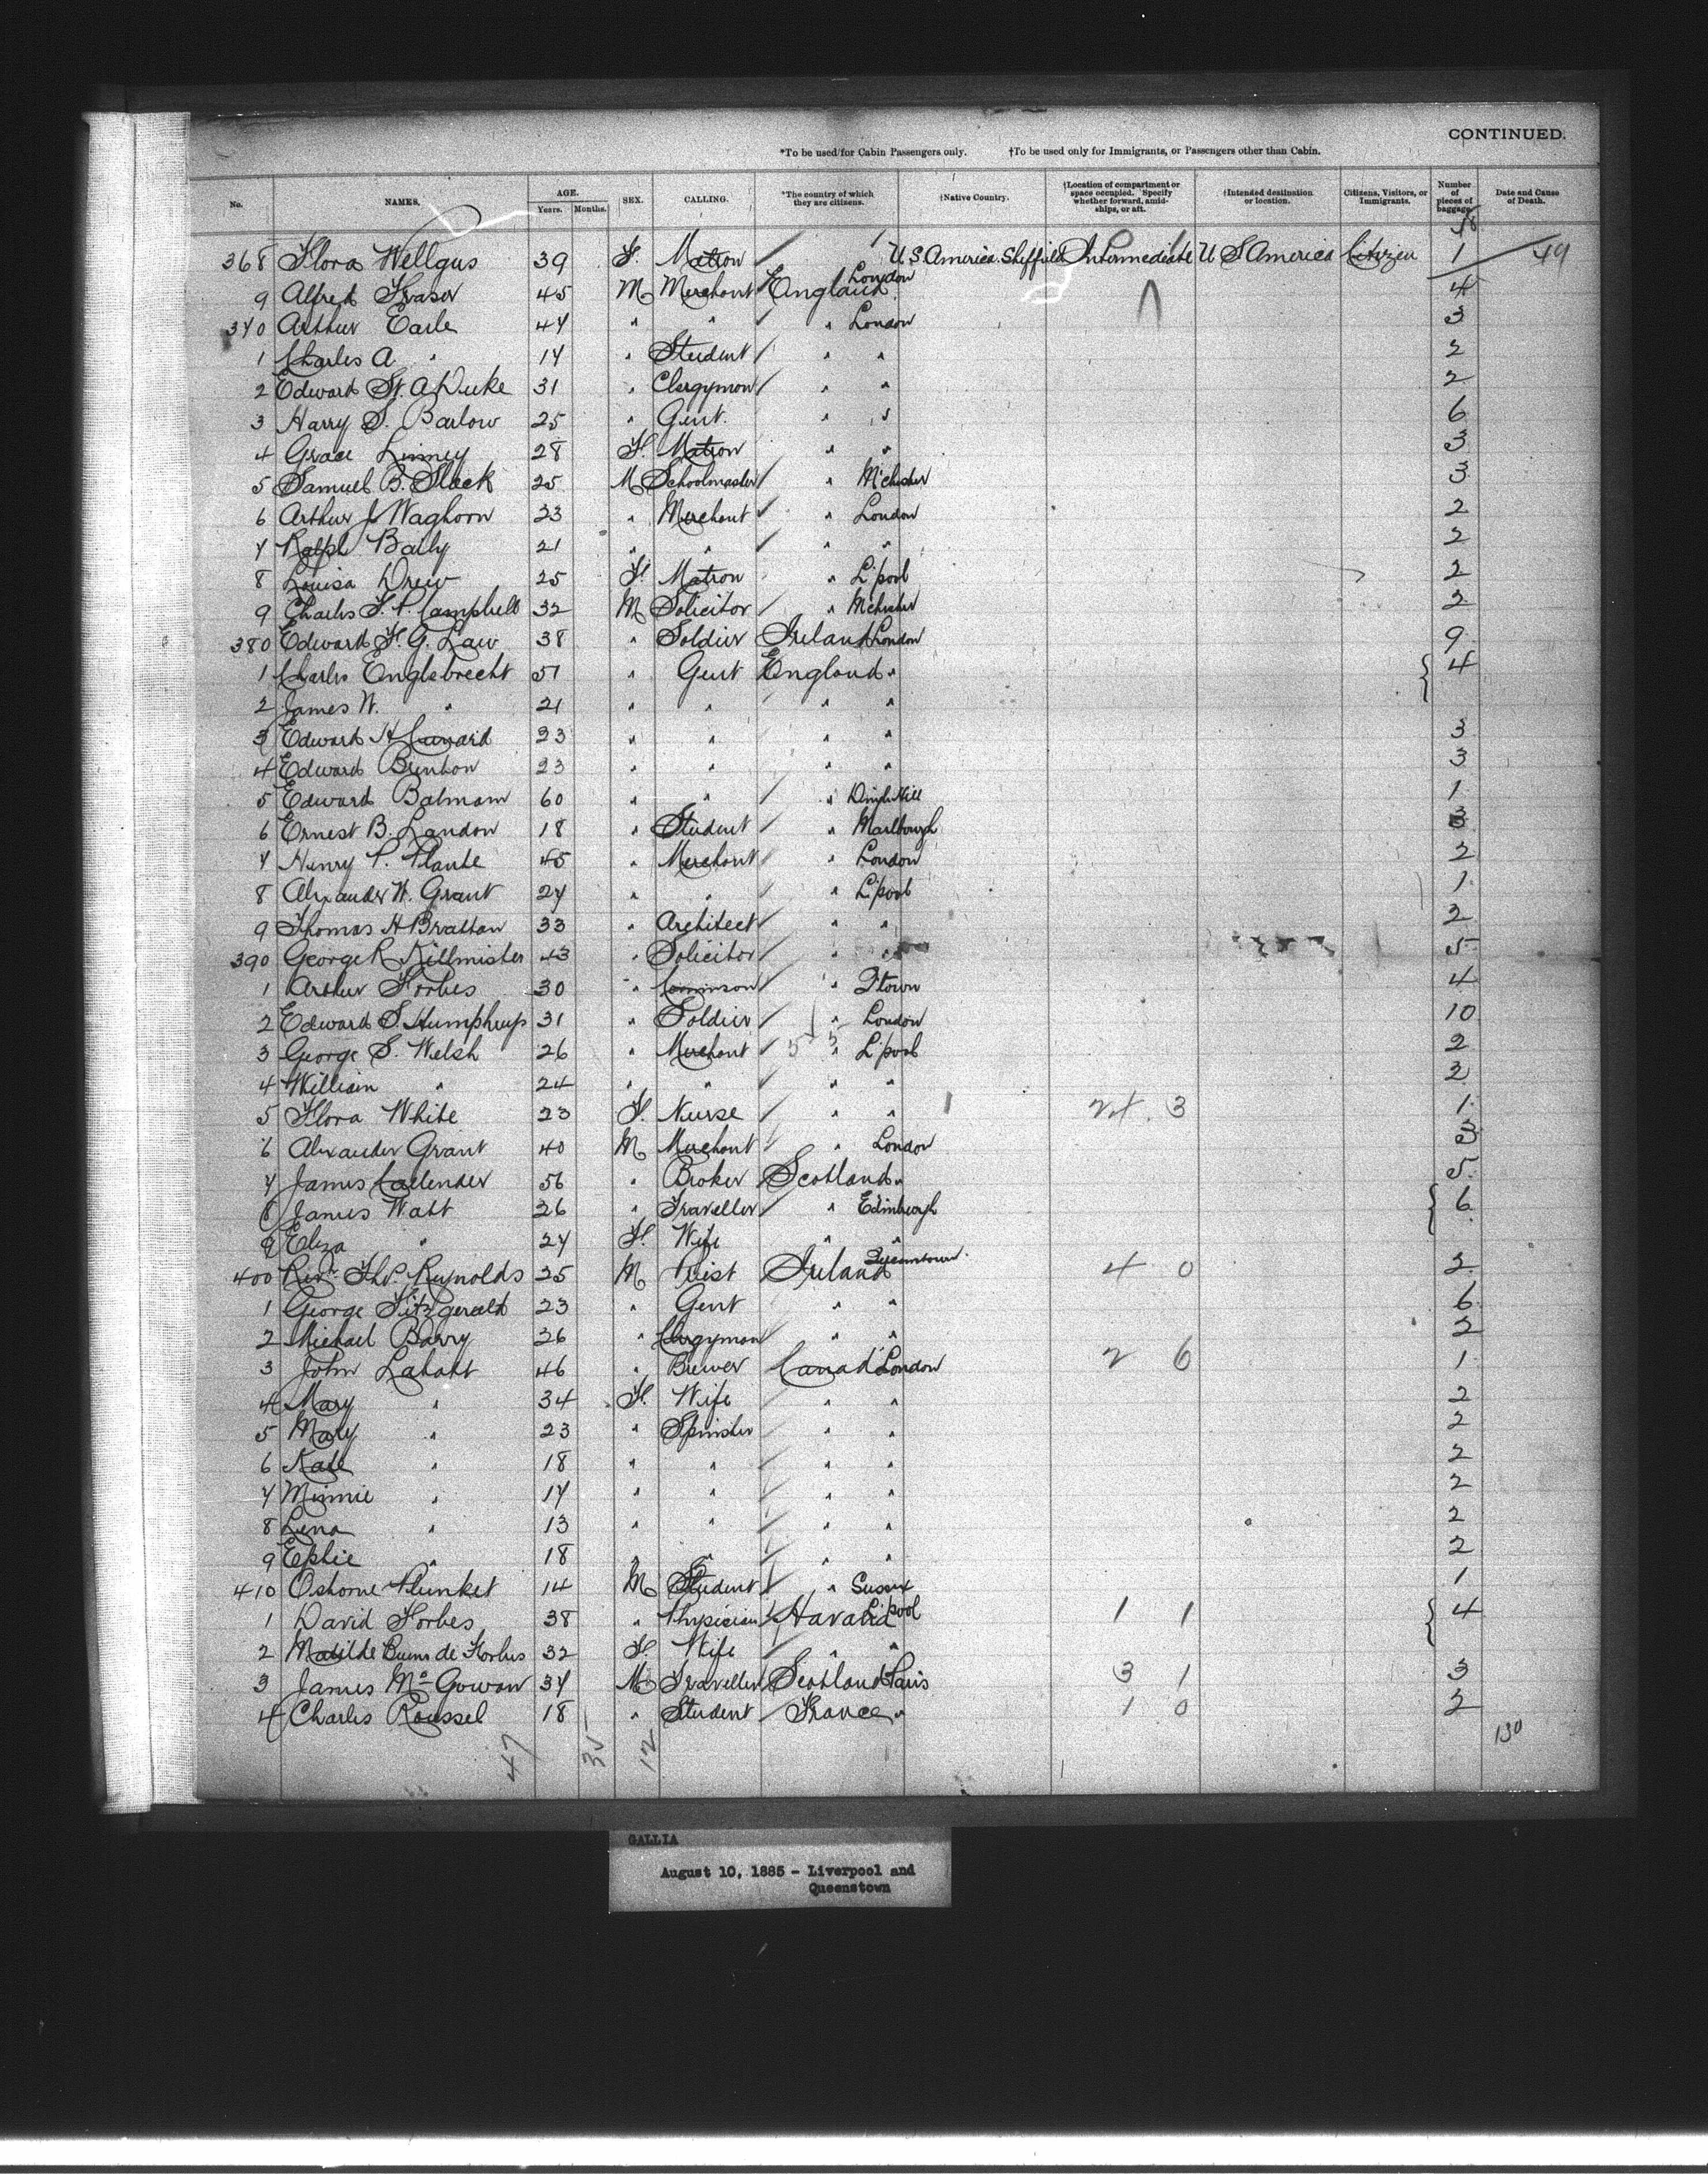 CONTINUED.
*To be used for Cabin Passengers only. †To be used only for Immigrants, or Passengers other than Cabin.
No. NAMES. AGE. Years. Months. SEX. CALLING. *The country of which they are citizens. †Native Country. †Location of compartment or space occupied. Specify whether forward, amidships, or aft. †Intended destination or location. Citizens, Visitors, or Immigrants. Number of pieces of baggage. Date and Cause of Death.
368 Flora Wellgus 39 F. Matron U.S. America. Sheffield Intermediate U S America Citizen 1 49
9 Alfred Fraser 45 M Merchant England London 4
370 Arthur Earle 47 " " " London 3
1 Charles A. " 14 " Student " " 2
2 Edward St. A Duke 31 " Clergyman " " 2
3 Harry S. Barlow 25 " Gent. " " 6
4 Grace Linney 28 F. Matron " " 3
5 Samuel B. Slack 25 M Schoolmaster " M'chester 3
6 Arthur J Waghorn 23 " Merchant " London 2
7 Ralph Baily 21 " " " " 2
8 Louisa Drew 25 F. Matron " L'pool 2
9 Charles F. P. Campbell 32 M Solicitor " M'chester 2
380 Edward F. G. Law 38 " Soldier Ireland London 9
1 Charles Englebrecht 51 " Gent England " 4
2 James W. " 21 " " " "
3 Edward H Cunard 23 " " " " 3
4 Edward Brunton 23 " " " " 3
5 Edward Batmam 60 " " " 1
6 Ernest B. Landon 18 " Student " Marlbough 3
7 Henry P. Plante 45 " Merchant " London 2
8 Alexander W. Grant 27 " " " L'pool 1
9 Thomas H Bratton 33 " Architect " " 2
390 George R Killmister 43 " Solicitor " " 5
1 Arthur Forbes 30 " " Q'town 4
2 Edward S. Humphrey 31 " Soldier " London 10
3 George S. Welsh 26 " Merchant " L'pool 2
4 William " 24 " " " " 2
5 Flora White 23 F. Nurse " " 24. 3 1
6 Alexander Grant 40 M Merchant " London 3
7 James Callender 56 " Broker Scotland " 5
8 James Watt 26 " Traveller " Edinburgh 6
9 Eliza " 27 F. Wife " "
400 Revd. Thos. Reynolds 25 M Priest Ireland Queenstown. 4 0 2
1 George Fitzgerald 23 " Gent " " 6
2 Michael Barry 36 " Clergyman " " 2
3 John Labatt 46 " Brewer Canad London 2 6 1
4 Mary " 34 F. Wife " " 2
5 Mary " 23 " Spinster " " 2
6 Kate " 18 " " " " 2
7 Minnie " 17 " " " " 2
8 Lena " 13 " " " " 2
9 Ephie " 18 " " " " 2
410 Osborne Plunket 14 M Student " Sussex 1
1 David Forbes 38 " Physician Havana L'pool 1 1 4
2 Matilde de Forbes 32 F. Wife " "
3 James McGowan 37 M Traveller Scotland Paris 3 1 3
4 Charles Roussel 18 " Student France " 1 0 2
130
47 35 12
GALLIA
August 10, 1885 - Liverpool and
Queenstown